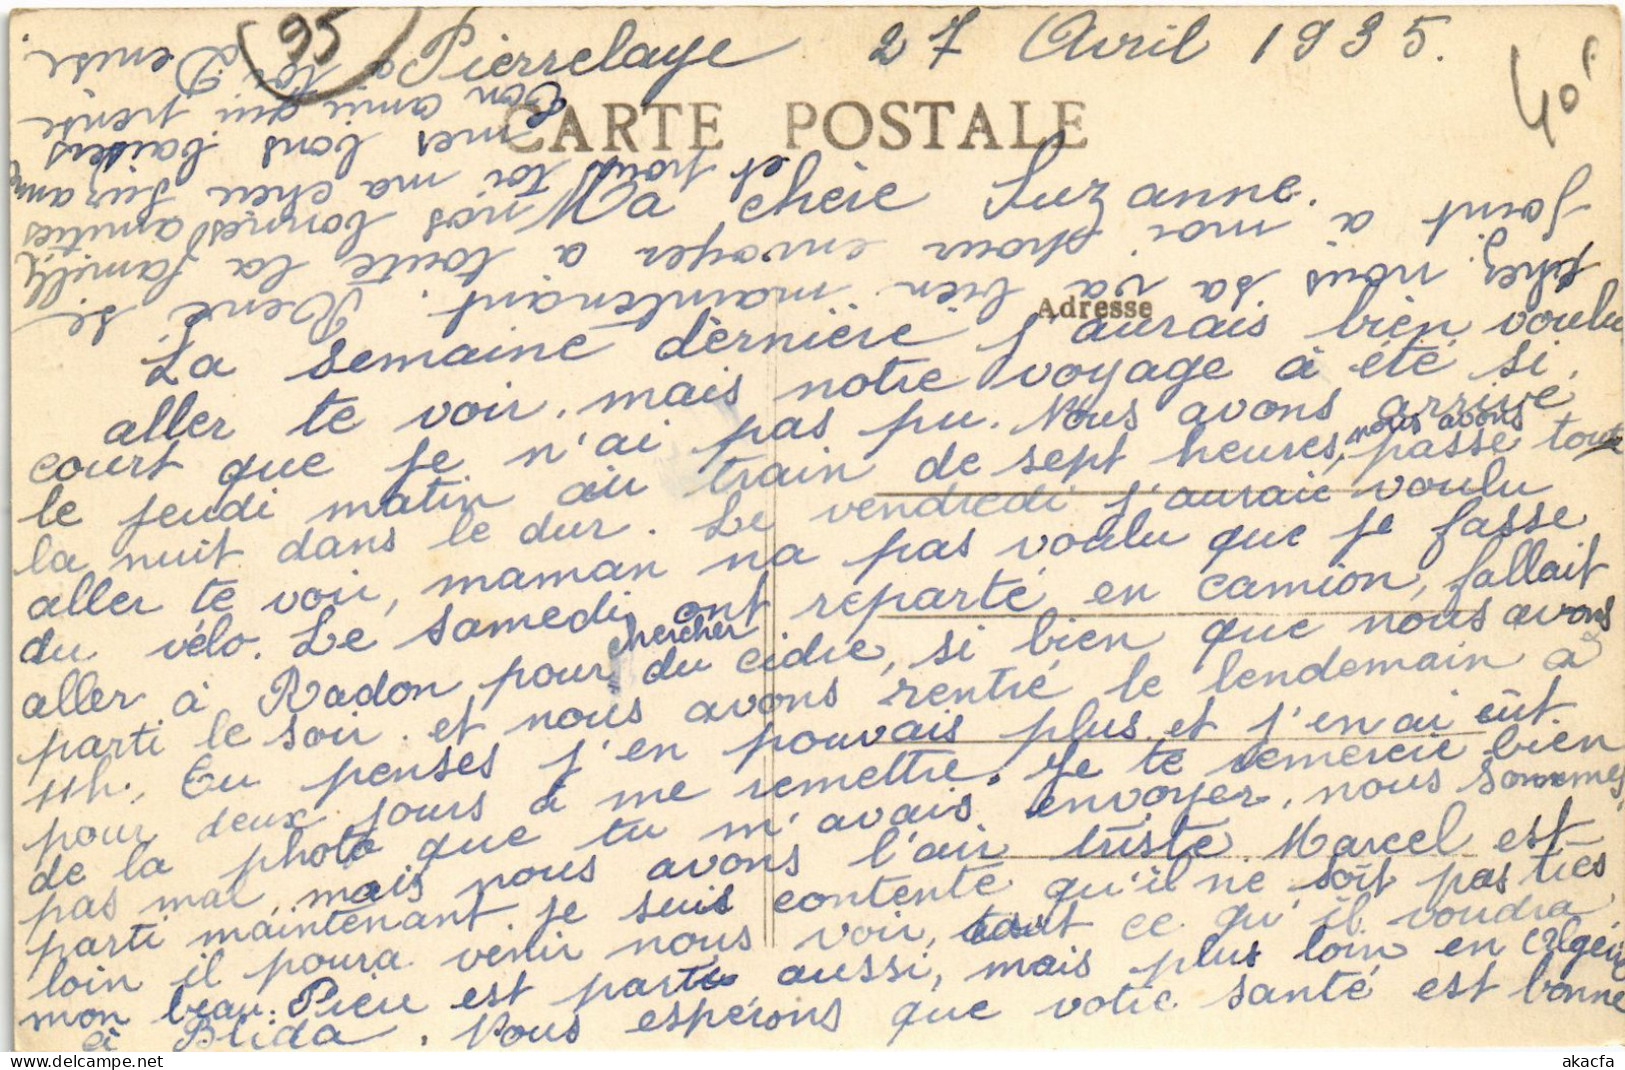 95
Pierrelaye 27 Avril 1935.
40f
CARTE POSTALE
Ma chère Suzanne.
Adresse
La semaine dèrnière j'aurais bien voulu
aller te voir, mais notre voyage à été si
court que je n'ai pas pu. Nous avons arrivé
le jeudi matin au train de sept heures, nous avons passé toute
la nuit dans le dur. Le vendredi j'aurais voulu
aller te voir, maman na pas voulu que je fasse
du vélo. Le samedi ont reparté en camion, fallait
aller à Radon pour chercher du cidre, si bien que nous avons
parti le soir et nous avons rentré le lendemain à
11h. Tu penses j'en pouvais plus et j'en ai eût
pour deux jours à me remettre. Je te remercie bien
de la photo que tu m'avais envoyer, nous sommes
pas mal, mais nous avons l'air triste. Marcel est
parti maintenant je suis contente qu'il ne soit pas très
loin il poura venir nous voir, tout ce qu'il voudra
mon beau-Père est partis aussi, mais plus loin en Algérie
à Blida. Nous espérons que votre santé est bonne
chez nous sa va bien maintenant. René se
joint à moi pour envoyer à toute la famille
nos bonnes amitiés
et pour toi ma cher Suzanne
mes bons baisers
Ton amie qui pense
à toi
Denise.
akacfa